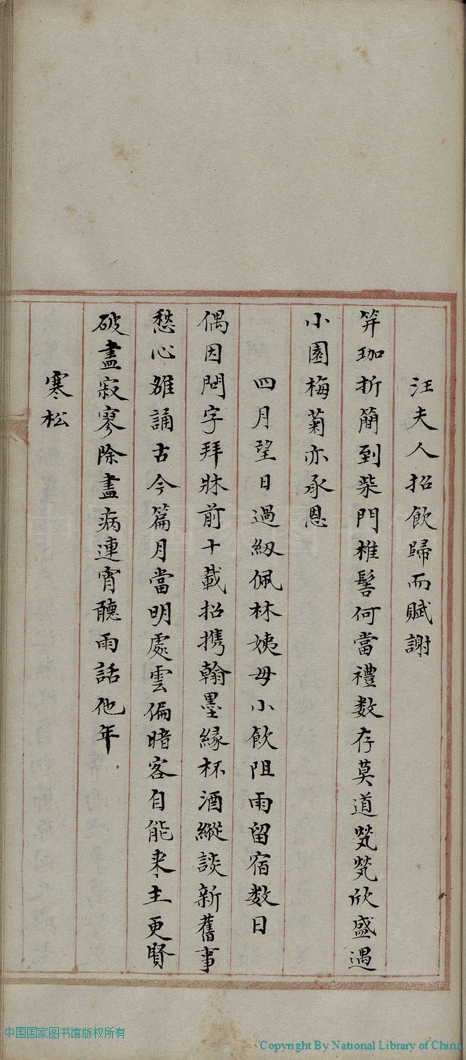 汪夫人招飲歸而賦謝
笄珈折簡到柴門椎髻何當禮数存莫道煢煢欣盛遇
小園梅菊亦承恩
四月望日過紉佩林姨母小飲阻雨留宿数日
偶因問字拜牀前十載招携翰墨緣杯酒縱談新舊事
愁心雒誦古今篇月當明處雲偏暗客自能来主更賢
破盡寂寥除盡病連宵聽雨話他年
寒松
中国国家图书馆版权所有
Copyright By National Library of China